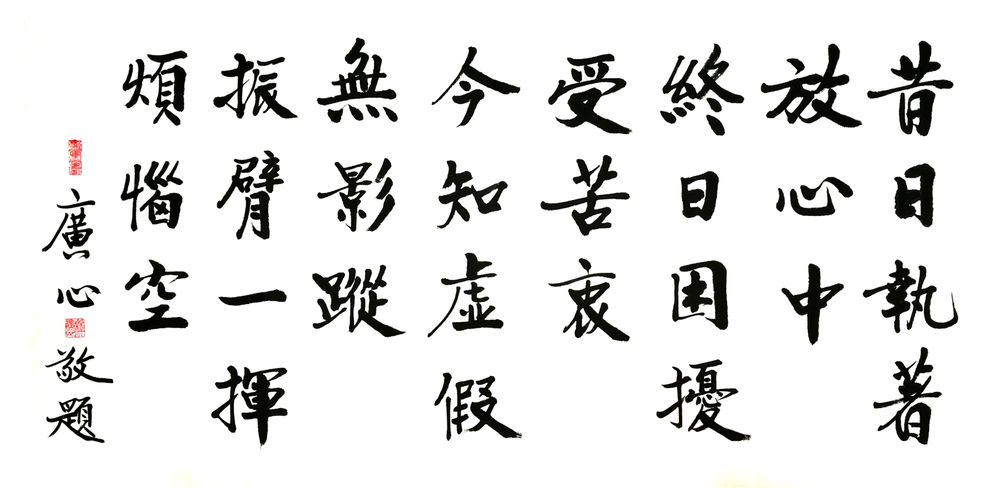 昔日執著
放心中
終日困擾
受苦衷
今知虛假
無影蹤
振臂一揮
煩惱空
廣心敬題